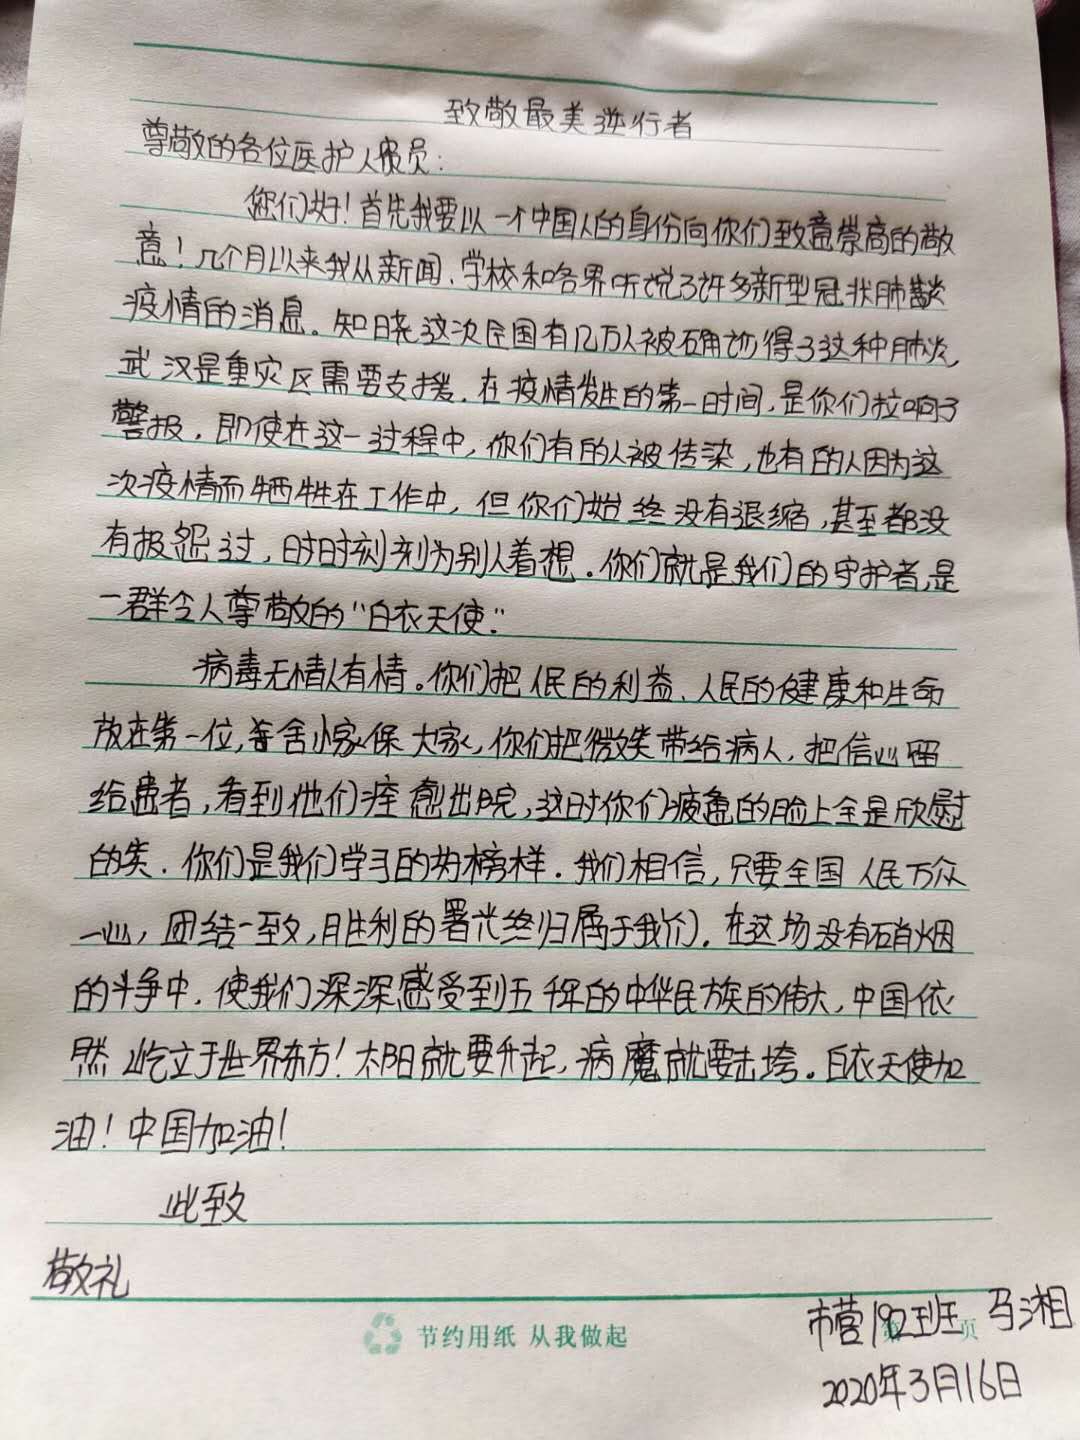 致敬最美逆行者
尊敬的各位医护人员:
您们好!首先我要以一个中国人的身份向你们致意崇高的敬
意!几个月以来我从新闻、学校和各界听说了许多新型冠状肺炎
疫情的消息。知晓这次全国有几万人被确诊得了这种肺炎,
武汉是重灾区需要支援.在疫情发生的第一时间,是你们拉响了
警报,即使在这一过程中,你们有的人被传染,也有的人因为这
次疫情而牺牲在工作中,但你们始终没有退缩,甚至都没
有报怨过,时时刻刻为别人着想.你们就是我们的守护者,是
一群令人尊敬的“白衣天使”.
病毒无情人有情。你们把人民的利益、人民的健康和生命
放在第一位,舍小家保大家,你们把微笑带给病人,把信心留
给患者,看到他们痊愈出院,这时你们疲惫的脸上全是欣慰
的笑.你们是我们学习的好榜样.我们相信,只要全国人民万众
一心,团结一致,胜利的署光终归属于我们.在这场没有硝烟
的斗争中.使我们深深感受到五千年的中华民族的伟大,中国依
然屹立于世界东方!太阳就要升起,病魔就要击垮。白衣天使加
油!中国加油!
此致
敬礼
市营192班 马湘
第 页
节约用纸 从我做起
2020年3月16日